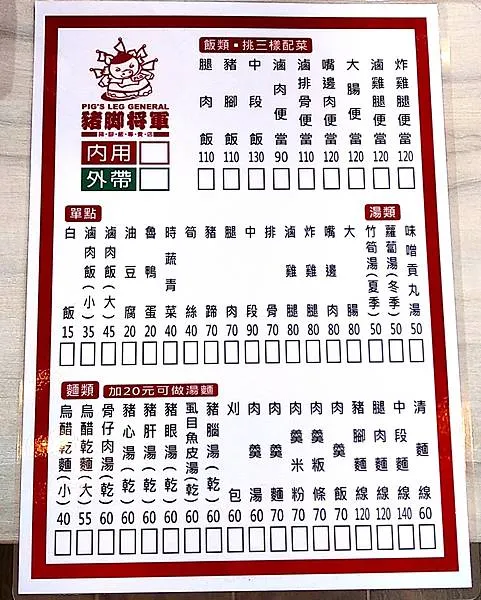 PIG'S LEG GENERAL
豬脚将軍
內用
外帶
飯類・挑三樣配菜
腿肉飯 110
豬腳飯 110
中段飯 130
滷肉便當 90
滷排骨便當 110
嘴邊肉便當 120
大腸便當 120
滷雞腿便當 120
炸雞腿便當 120
單點
白飯 15
滷肉飯(小) 35
滷肉飯(大) 45
油豆腐 20
魯鴨蛋 20
時蔬青菜 40
筍絲 40
豬蹄 70
腿肉 70
中段 90
排骨 70
滷雞腿 80
炸雞腿 80
嘴邊肉 80
大腸 80
湯類
竹筍湯(夏季) 50
蘿蔔湯(冬季) 50
味噌貢丸湯 50
麵類
加20元可做湯麵
烏醋乾麵(小) 40
烏醋乾麵(大) 55
骨仔肉湯(乾) 60
豬心湯(乾) 60
豬肝湯(乾) 60
豬眼湯(乾) 60
虱目魚皮湯(乾) 60
豬腦湯(乾) 60
刈包 60
肉羹湯 60
肉羹麵 70
肉羹米粉 70
肉羹粄條 70
肉羹飯 70
豬腳麵線 120
腿肉麵線 120
中段麵線 140
清麵線 60